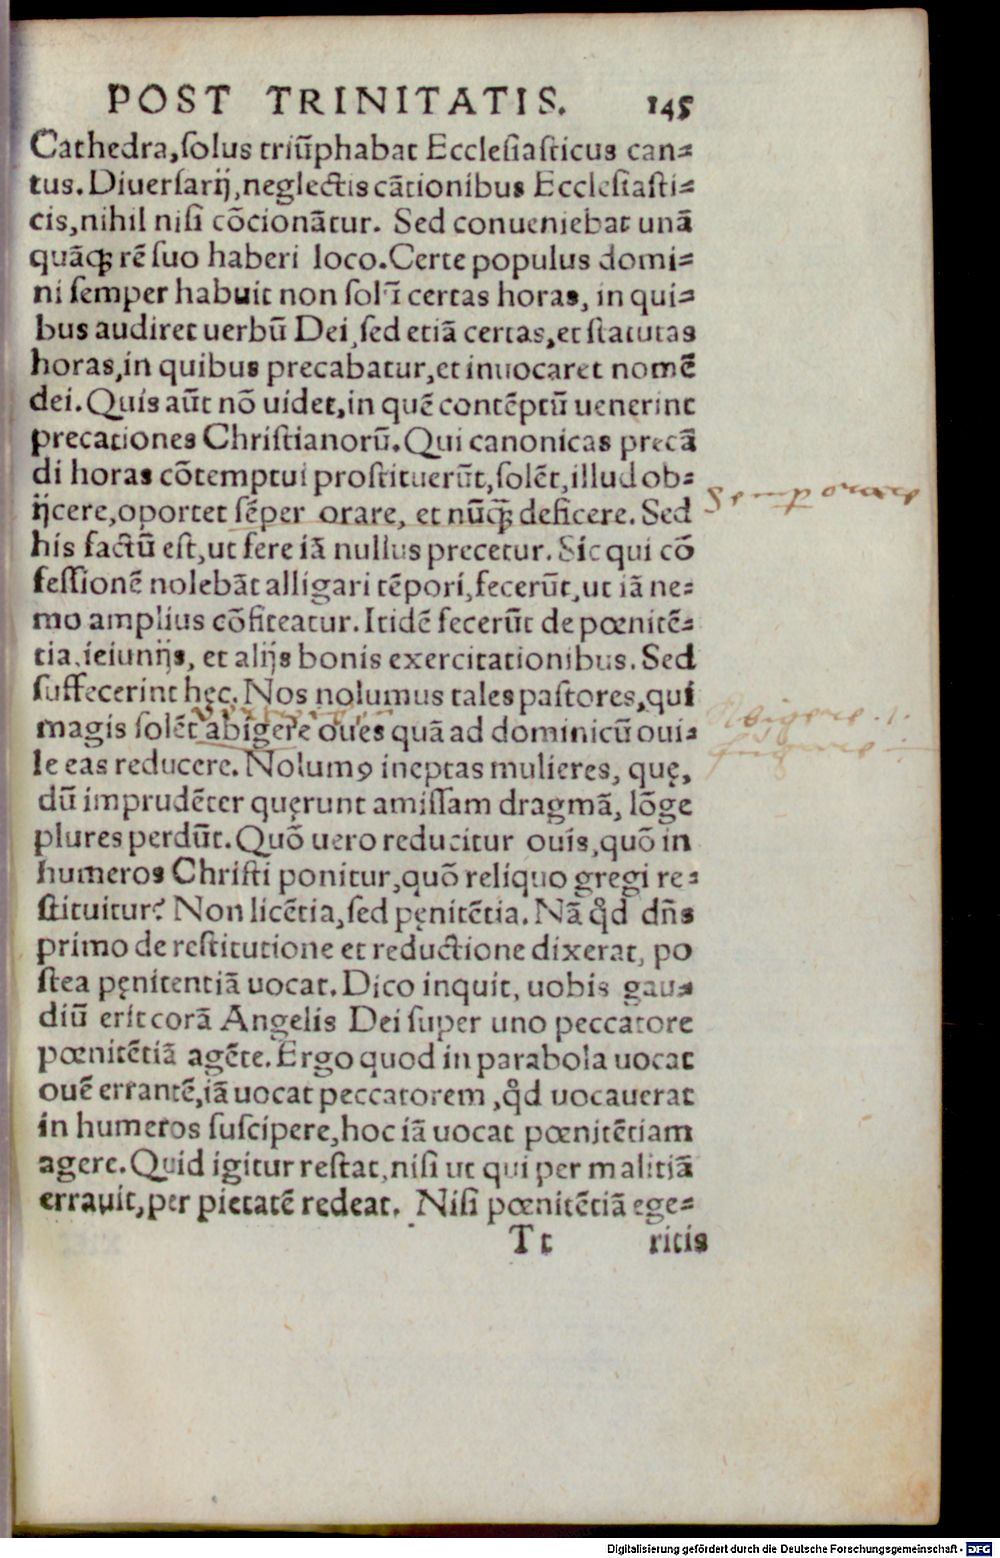 POST TRINITATIS. 145
Cathedra, ſolus triũphabat Eccleſiaſticus can⸗
tus. Diuerſarij, neglectis cãtionibus Eccleſiaſti⸗
cis, nihil niſi cõcionãtur. Sed conueniebat unã
quãq; rẽ ſuo haberi loco. Certe populus domi⸗
ni ſemper habuit non ſolũ certas horas, in qui⸗
bus audiret uerbũ Dei, ſed etiã certas, et ſtatutas
horas, in quibus precabatur, et inuocaret nomẽ
dei. Quis aũt nõ uidet, in quẽ contẽptũ uenerint
precationes Chriſtianorũ. Qui canonicas precã
di horas cõtemptui proſtituerũt, ſolẽt, illud ob⸗
ijcere, oportet ſẽper orare, et nũq̃; deficere. Sed
Semp orare
his factũ eſt, ut fere iã nullus precetur. Sic qui cõ
feſſionẽ nolebãt alligari tẽpori, fecerũt, ut iã ne⸗
mo amplius cõfiteatur. Itidẽ fecerũt de pœnitẽ⸗
tia, ieiunijs, et alijs bonis exercitationibus. Sed
ſuffecerint hęc. Nos nolumus tales paſtores, qui
magis ſolẽt abigere oues quã ad dominicũ oui⸗
Abigere .i.
fugare
le eas reducere. Nolumꝯ ineptas mulieres, quę,
dũ imprudẽter quęrunt amiſſam dragmã, lõge
plures perdũt. Quõ uero reducitur ouis, quõ in
humeros Chriſti ponitur, quõ reliquo gregi re⸗
ſtituitur? Non licẽtia, ſed pęnitẽtia. Nã qd̊ dñs
primo de reſtitutione et reductione dixerat, po
ſtea pęnitentiã uocat. Dico inquit, uobis gau⸗
diũ erit corã Angelis Dei ſuper uno peccatore
pœnitẽtiã agẽte. Ergo quod in parabola uocat
ouẽ errantẽ, iã uocat peccatorem, qd̊ uocauerat
in humeros ſuſcipere, hoc iã uocat pœnitẽtiam
agere. Quid igitur reſtat, niſi ut qui per malitiã
errauit, per pietatẽ redeat. Niſi pœnitẽtiã ege⸗
Tt ritis
Digitalisierung gefördert durch die Deutsche Forschungsgemeinschaft - DFG